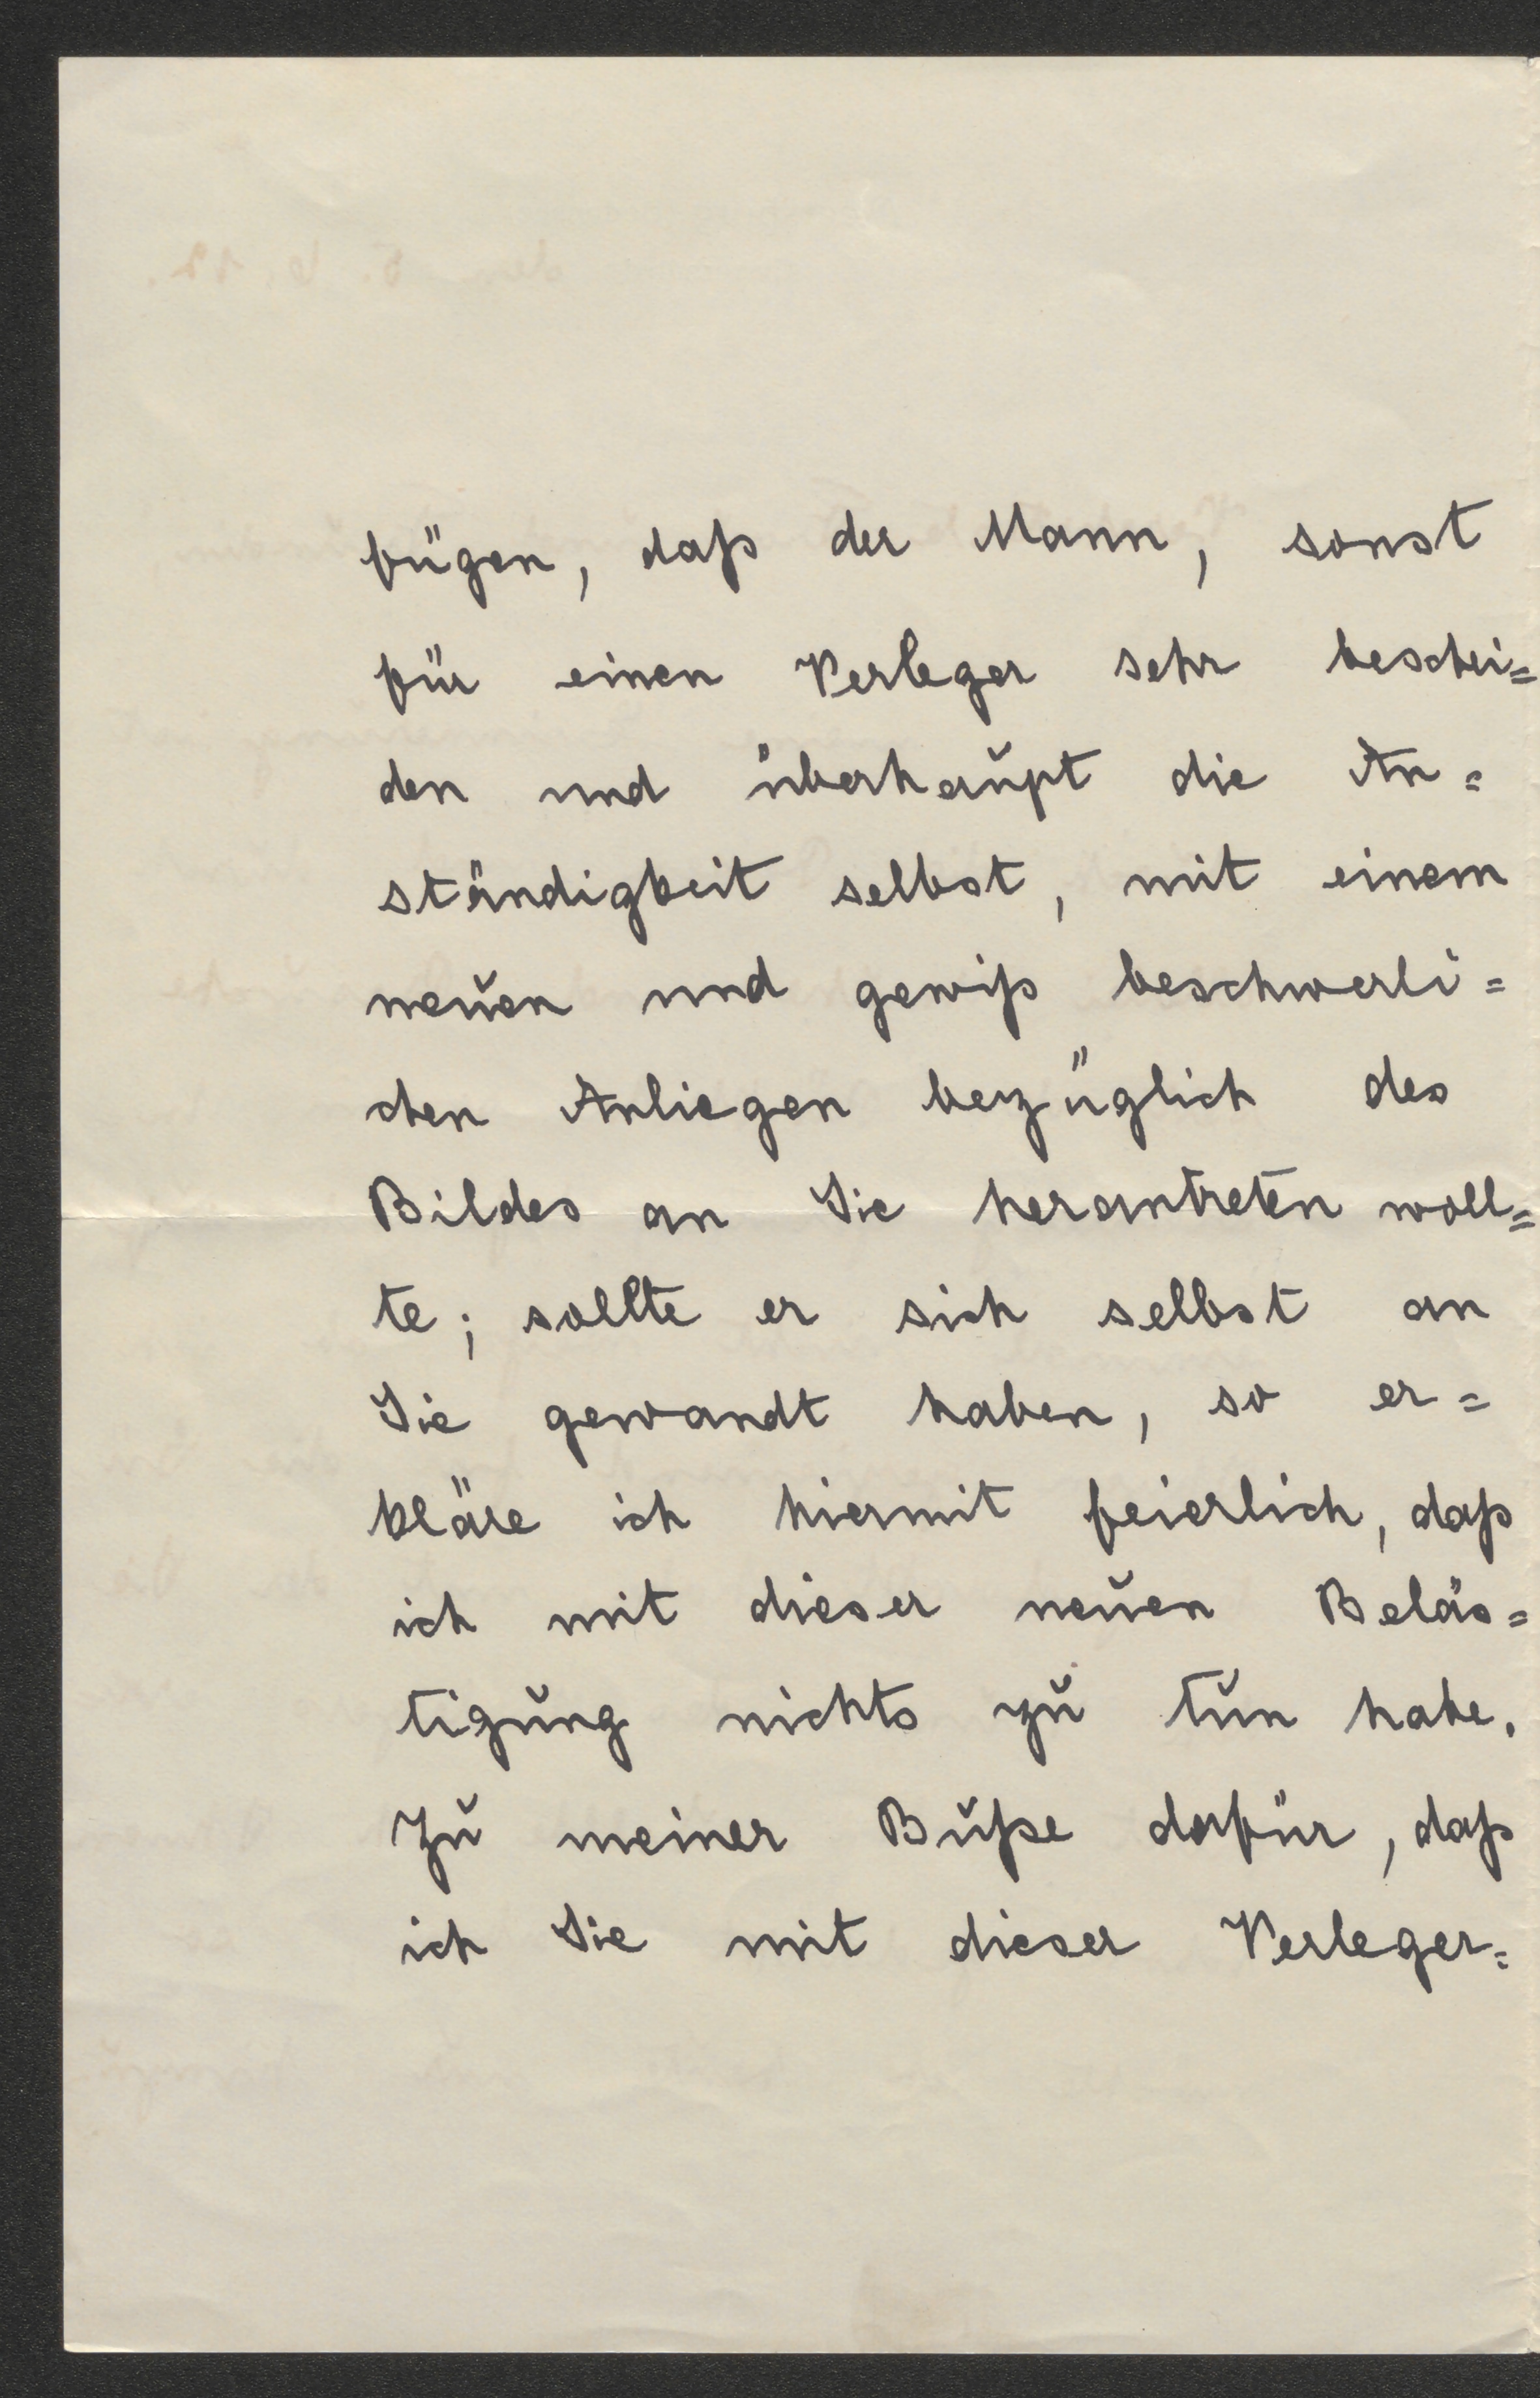 fügen, daß der Mann, sonst
für einen Verleger sehr beschei=
den und überhaupt die An=
ständigkeit selbst, mit einem
neuen und gewiß beschwerli=
chen Anliegen bezüglich des
Bildes an Sie herantreten woll=
te; sollte er sich selbst an
Sie gewandt haben, so er=
kläre ich hiermit feierlich, daß
ich mit dieser neuen Beläs=
tigung nichts zu tun habe.
Zu meiner Buße dafür, daß
ich Sie mit dieser Verleger=